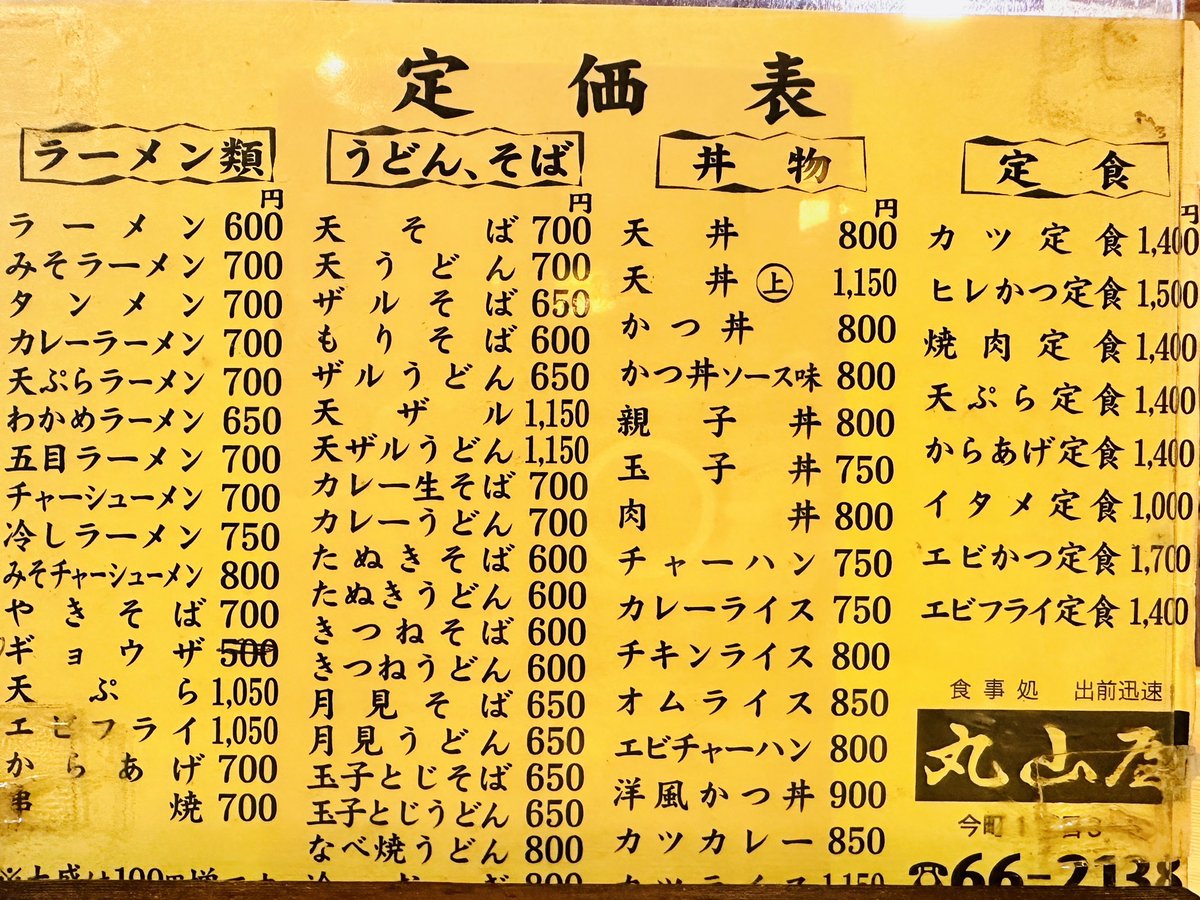 定価表
ラーメン類
円
ラーメン 600
みそラーメン 700
タンメン 700
カレーラーメン 700
天ぷらラーメン 700
わかめラーメン 650
五目ラーメン 700
チャーシューメン 700
冷しラーメン 750
みそチャーシューメン 800
やきそば 700
ギョウザ 500
天ぷら 1,050
エビフライ 1,050
からあげ 700
串焼 700
※大盛は100円増
うどん、そば
円
天そば 700
天うどん 700
ザルそば 650
もりそば 600
ザルうどん 650
天ザル 1,150
天ザルうどん 1,150
カレー生そば 700
カレーうどん 700
たぬきそば 600
たぬきうどん 600
きつねそば 600
きつねうどん 600
月見そば 650
月見うどん 650
玉子とじそば 650
玉子とじうどん 650
なべ焼うどん 800
800
丼物
円
天丼 800
天丼 上 1,150
かつ丼 800
かつ丼ソース味 800
親子丼 800
玉子丼 750
肉丼 800
チャーハン 750
カレーライス 750
チキンライス 800
オムライス 850
エビチャーハン 800
洋風かつ丼 900
カツカレー 850
カツライス 1,150
定食
円
カツ定食 1,400
ヒレかつ定食 1,500
焼肉定食 1,400
天ぷら定食 1,400
からあげ定食 1,400
イタメ定食 1,000
エビかつ定食 1,700
エビフライ定食 1,400
食事処 出前迅速
丸山屋
今町
☎66-2138